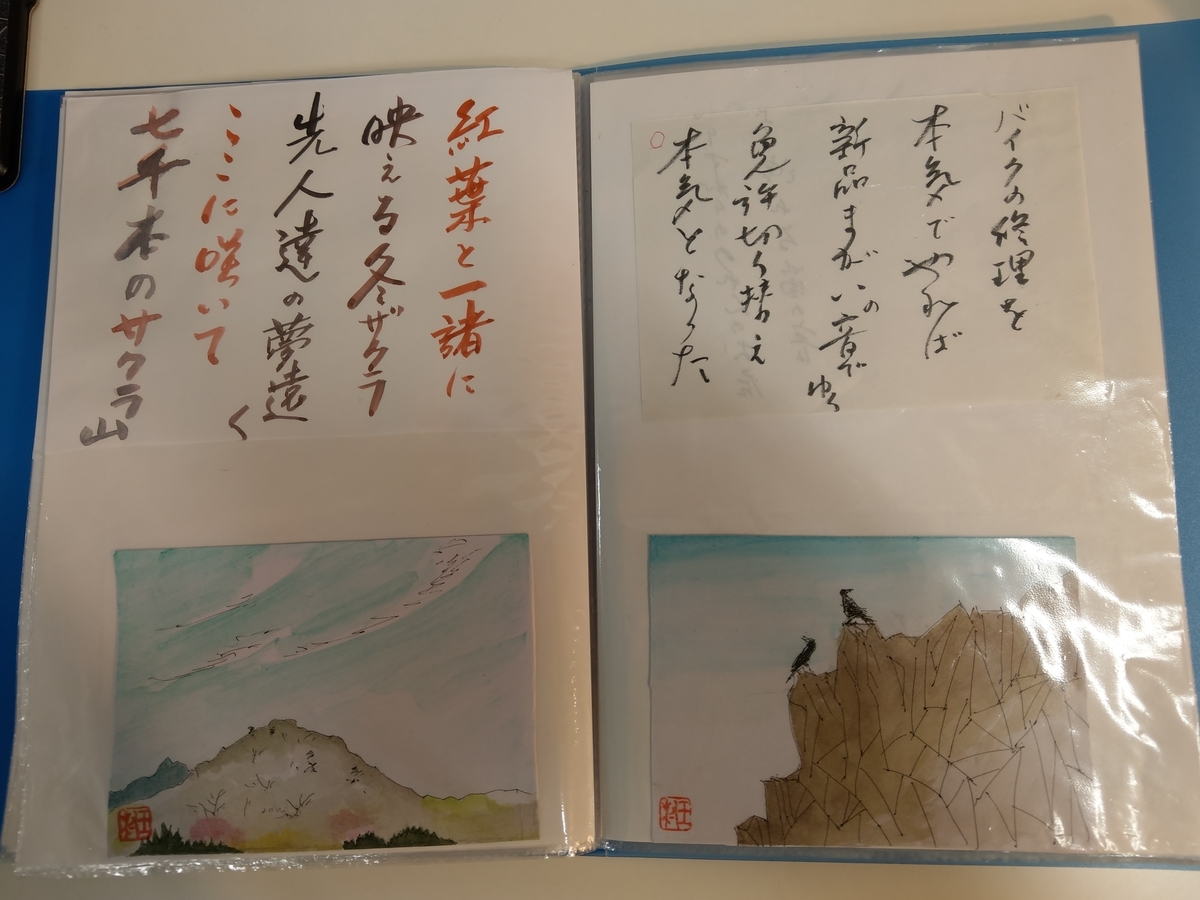 バイクの修理を
本気でやれば
新品まがいの音でゆく
免許切り替え
本気となった
紅葉と一諸に
映える冬ザクラ
先人達の夢遠く
ここに咲いて
七千本のサクラ山